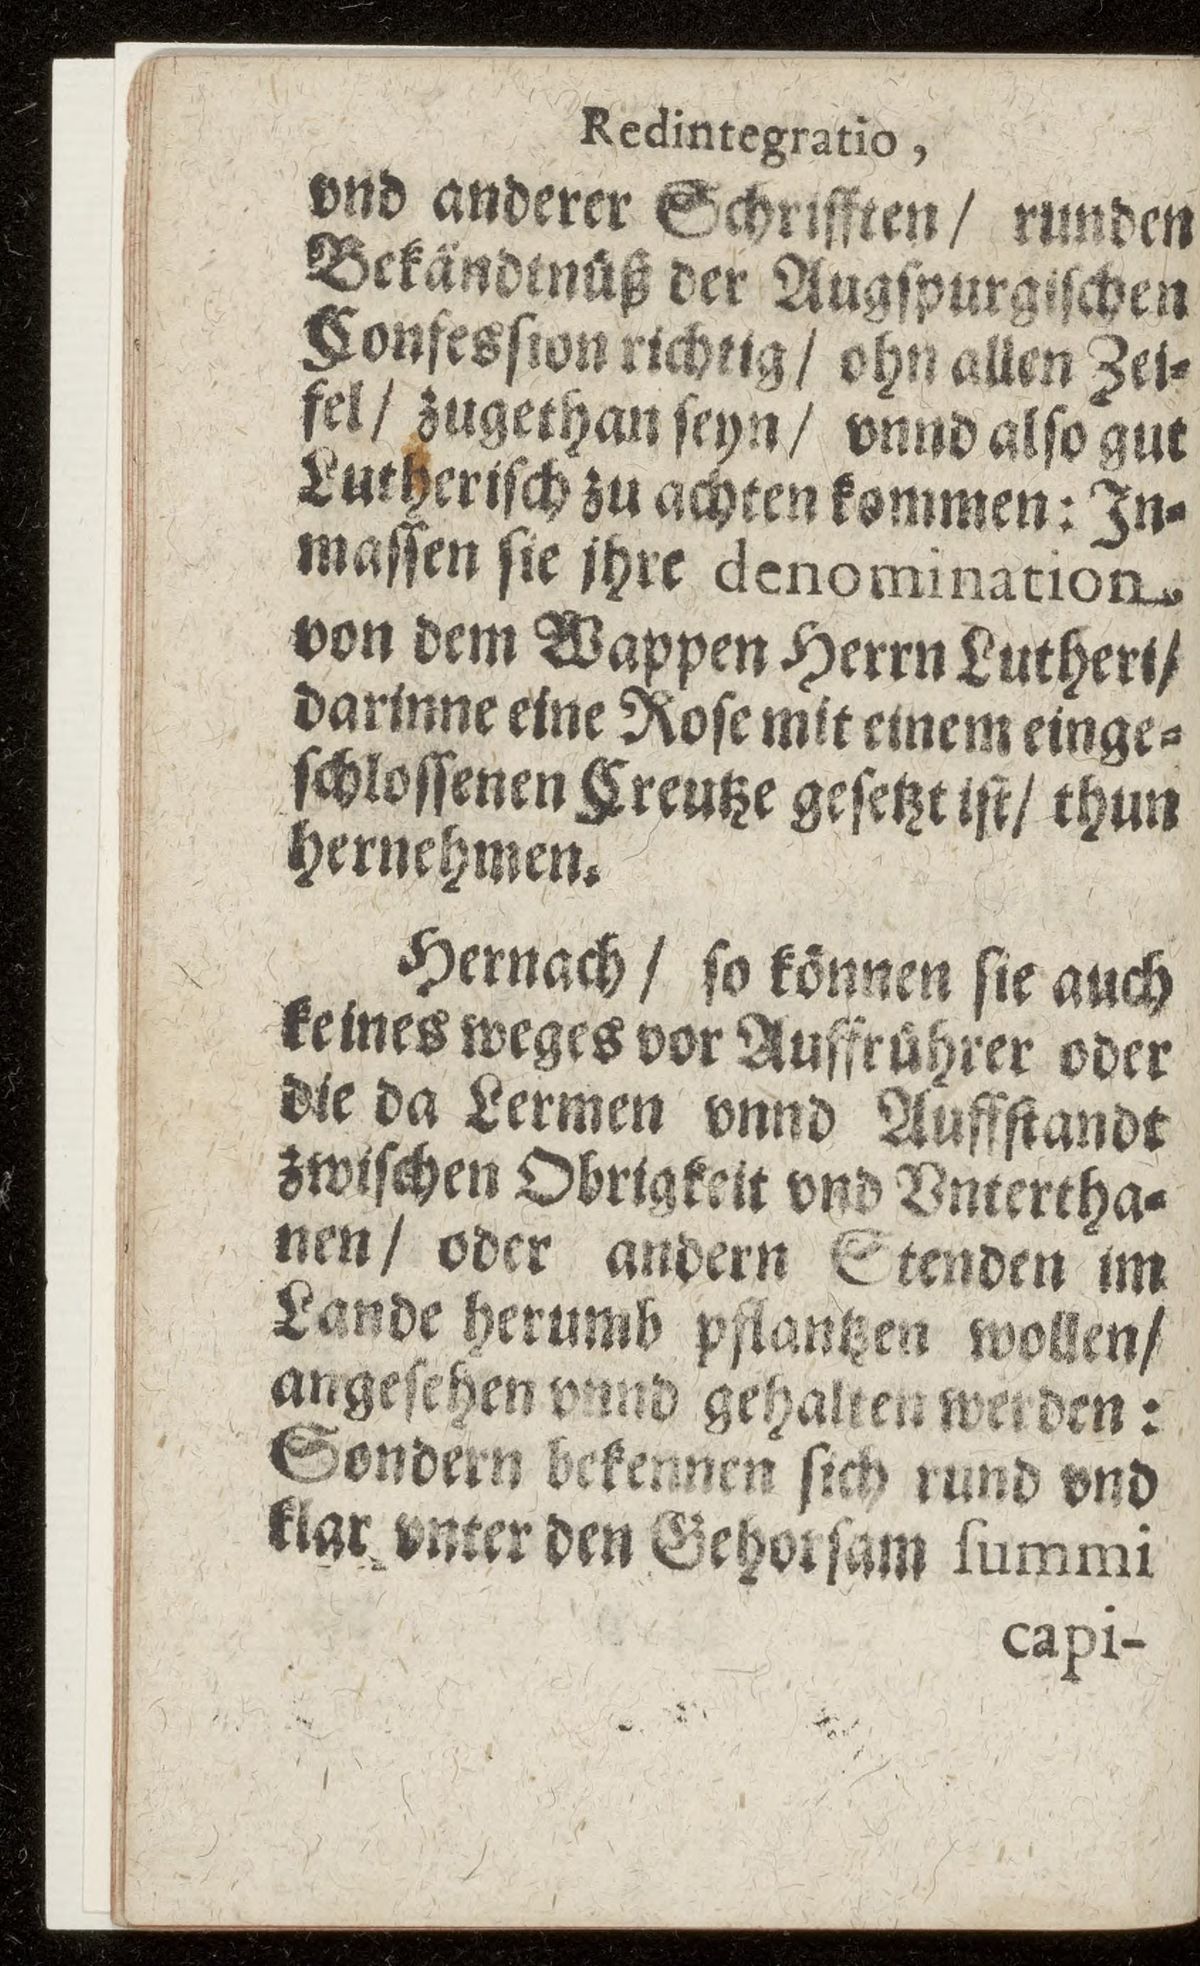 Redintegratio,
vnd anderer Schrifften/ runden
Bekändtnüß der Augſpurgiſchen
Confesſion richtig/ ohn allen Zei⸗
fel/ zugethan ſeyn/ vnnd alſo gut
Lutheriſch zu achten kommen: In⸗
maſſen ſie jhre denomination
von dem Wappen Herrn Lutheri/
darinne eine Roſe mit einem einge⸗
ſchloſſenen Creutze geſetzt iſt/ thun
hernehmen.
Hernach/ ſo können ſie auch
keines weges vor Auffrührer oder
die da Lermen vnnd Auffſtandt
zwiſchen Obrigkeit vnd Vntertha⸗
nen/ oder andern Stenden im
Lande herumb pflantzen wollen/
angeſehen vnnd gehalten werden:
Sondern bekennen ſich rund vnd
klar vnter den Gehorſam ſummi
capi-